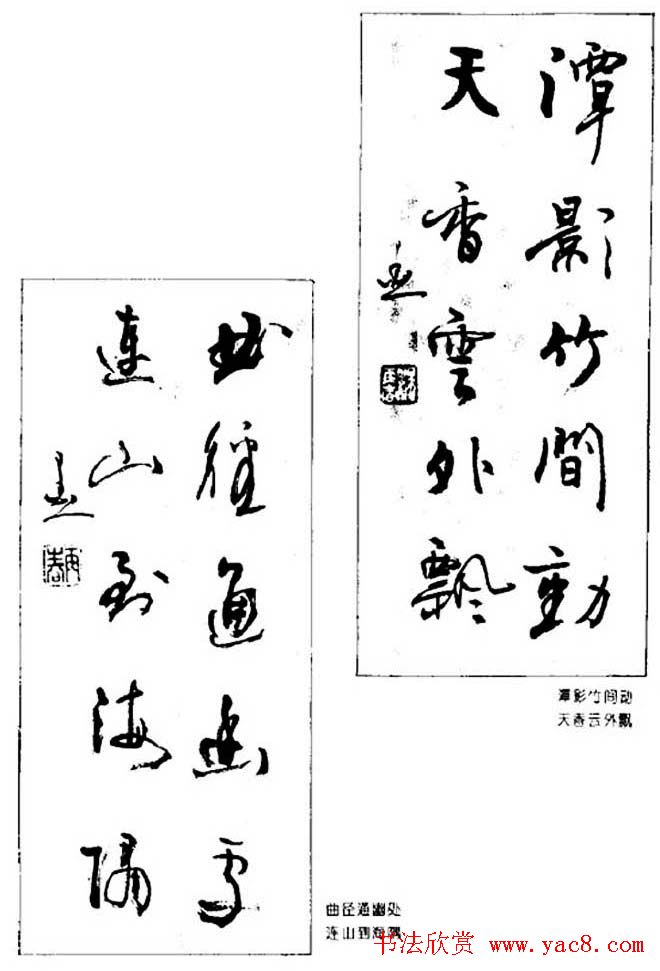 潭影竹間動
天香雲外飄
潭影竹间动
天香云外飘
曲徑通幽處
連山到海隅
曲径通幽处
连山到海隅
书法欣赏 www.yac8.com